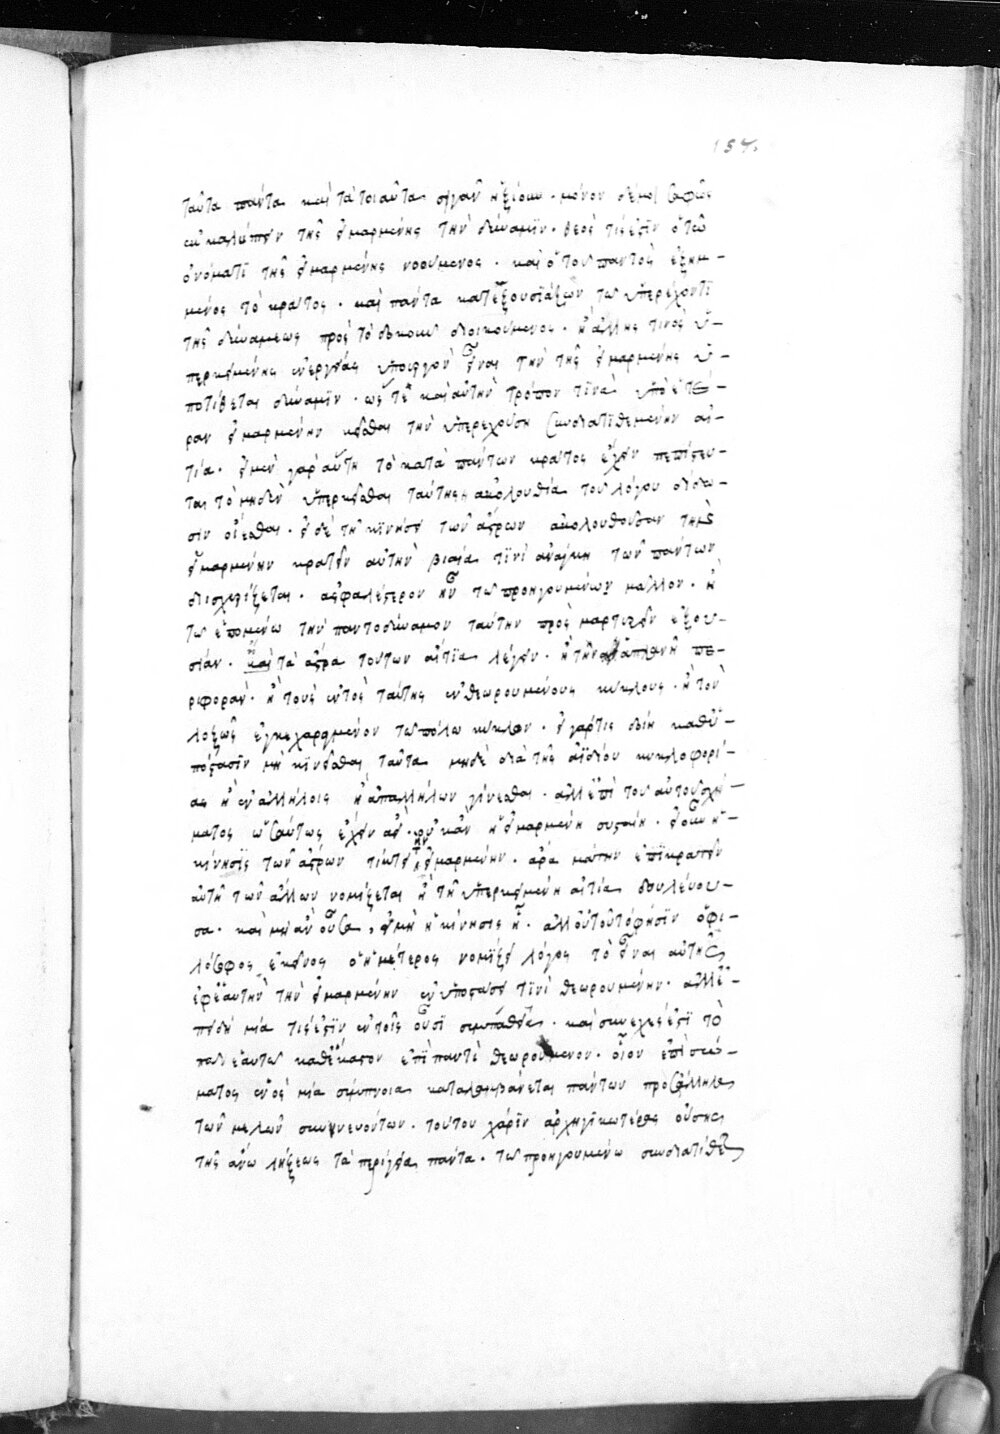 157.
ταῦτα πάντα καὶ τὰ τοιαῦτα σιγᾶν ἠξίουν. μόνον δέ μοι σαφῶς
ἐκκαλύπτειν τῆς εἱμαρμένης τὴν δύναμιν. θεός τίς ἐστιν ὁ τῶ
ὀνόματι τῆς εἱμαρμένης νοούμενος. καὶ ὁ τοῦ παντὸς ἐξημ-
μένος τὸ κράτος. καὶ πάντα κατεξουσϊάζων τῶ ὑπερέχοντι
τῆς δυνάμεως πρὸς τὸ δοκοῦν διοικούμενος. ἢ ἄλλης τινὸς ὑ-
περκειμένης ἐνεργείας ὑπουργὸν εἶναι τὴν τῆς εἱμαρμένης ὑ-
ποτίθεται δύναμϊν. ὥς τε καὶ αὐτὴν τρόπον τϊνα ὑπὸ ἑτέ-
ραν εἱμαρμένην κεῖσθαι τὴν ὑπερεχούση συνδιατϊθεμένην αἰ-
τία. εἰ μὲν γὰρ αὕτη τὸ κατὰ πάντων κράτος ἔχειν πεπίστευ-
ται τὸ μηδὲν ὑπερκεῖσθαι ταύτης ἀκολουθία τοῦ λόγου δίδω-
σιν οἴεσθαι. εἰ δὲ τῆ κϊνήσει τῶν ἄστρων ἀκολουθοῦσαν τὴν
εἱμαρμένην κρατεῖν αὐτὴν βιαία τϊνὶ ἀνάγκη τῶν πάντων
διϊσχυρίζεται. ἀσφαλέστερον ἦν τῶ προηγουμένω μᾶλλον. ἢ
τῶ ἑπομένω τὴν παντοδύναμον ταύτην προσμαρτυρεῖν ἐξου-
σίαν. καὶ τὰ ἄστρα τούτων αἴτϊα λέγειν. ἢ τὴν ἀπλανῆ πε-
ριφοράν. ἢ τοὺς ἐντὸς ταύτης ἐνθεωρουμένους κύκλους. ἢ τὸν
λοξῶς ἐγκεχαραγμένον τῶ πόλω κύκλον. εἰ γάρ τις δοίη καθ' ὑ-
πόθεσϊν μὴ κϊνεῖσθαι ταῦτα μηδὲ διὰ τῆς ἀϊδίου κυκλοφορί-
ας ἢ ἐν ἀλλήλοις ἢ ἀπ' ἀλλήλων γίνεσθαι. ἀλλ' ἐπὶ τοῦ αὐτοῦ σχή-
ματος ὡσαύτως ἔχειν ἀεί. οὐκ ἂν ἡ εἱμαρμένη συσταίη. εἰ οὖν ἡ
κίνησϊς τῶν ἄστρων τίκτει τὴν εἱμαρμένην. ἄρα μάτην ἐπϊκρατεῖν
αὐτὴ τῶν ἄλλων νομίζεται ἢ τῆ ὑπερκειμένη αἰτία δουλεύου-
σα. καὶ μὴ ἂν οὖσα, εἰ μὴ ἡ κίνησις ἦ. ἀλλ' οὐ τοῦτό φησϊν ὁ φι-
λόσοφος ἐκεῖνος ὁ ἡμέτερος νομίζει λόγος τὸ εἶναι αὐτῆς
ἐφ' ἑαυτὴν τὴν εἱμαρμένην ἐν ὑποστάσει τϊνὶ θεωρουμένην. ἀλλ' ἐ-
πειδὴ μία τίς ἐστϊν ἐν τοῖς οὖσϊ συμπάθεια. καὶ συνεχές ἐστϊ τὸ
πᾶν ἑαυτῶ καθ' ἕκαστον ἐπὶ παντὶ θεωρούμενον. οἷον ἐπὶ σώ-
ματος ἑνὸς μία σύμπνοια καταλαμβάνεται πάντων πρὸς ἄλληλα
τῶν μελῶν συννευόντων. τούτου χάριν ἀρχηγϊκωτέρας οὔσης
τῆς ἄνω λήξεως τὰ περίγεια πάντα. τῶ προηγουμένω συνδιατίθε